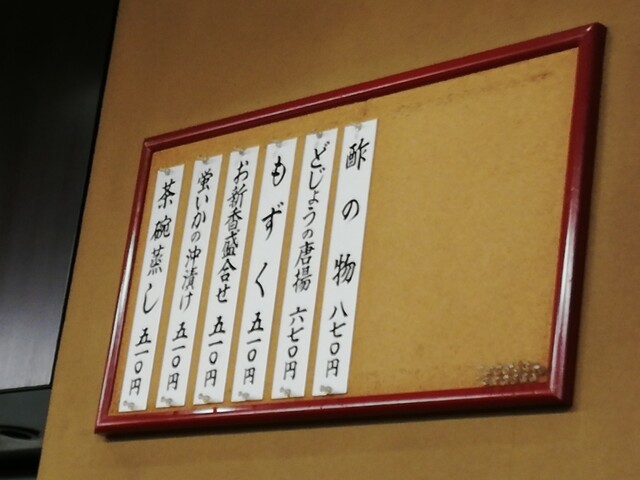 酢の物 八七〇円
どじょうの唐揚 六七〇円
もずく 五一〇円
お新香盛合せ 五一〇円
蛍いかの沖漬け 五一〇円
茶碗蒸し 五一〇円